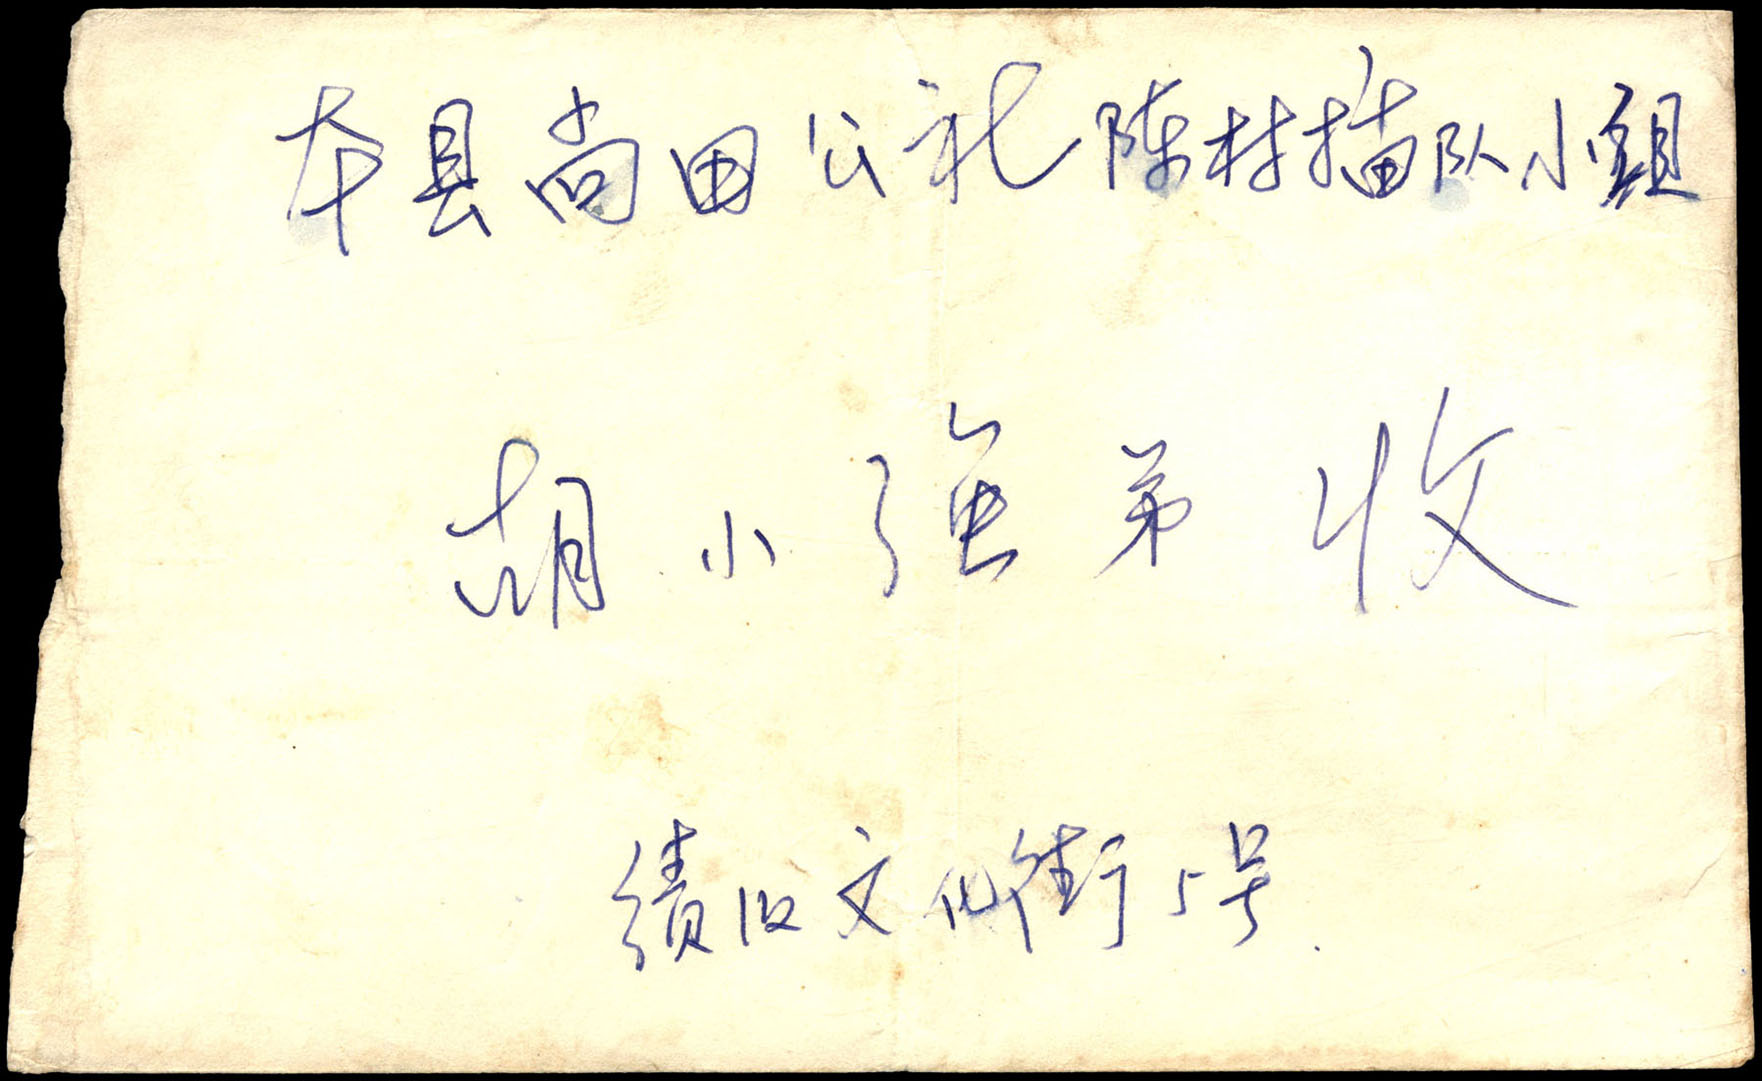 本县尚田公社陈村插队小组
胡小强弟收
绩旧文化街5号